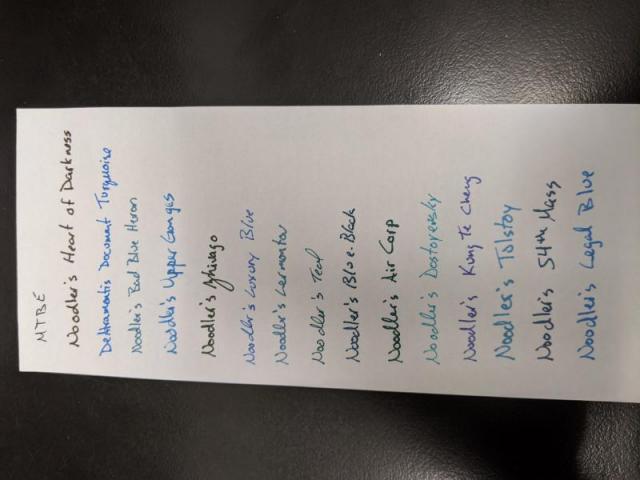 MTBE
Noodler's Heart of Darkness
DeAtramentis Document Turquoise
Noodler's Bad Blue Heron
Noodler's Upper Ganges
Noodler's Zhivago
Noodler's Luxury Blue
Noodler's Lermontov
Noodler's Teal
Noodler's Blue-Black
Noodler's Air Corp
Noodler's Dostoyevsky
Noodler's Kung Te Cheng
Noodler's Tolstoy
Noodler's 54th Mass
Noodler's Legal Blue